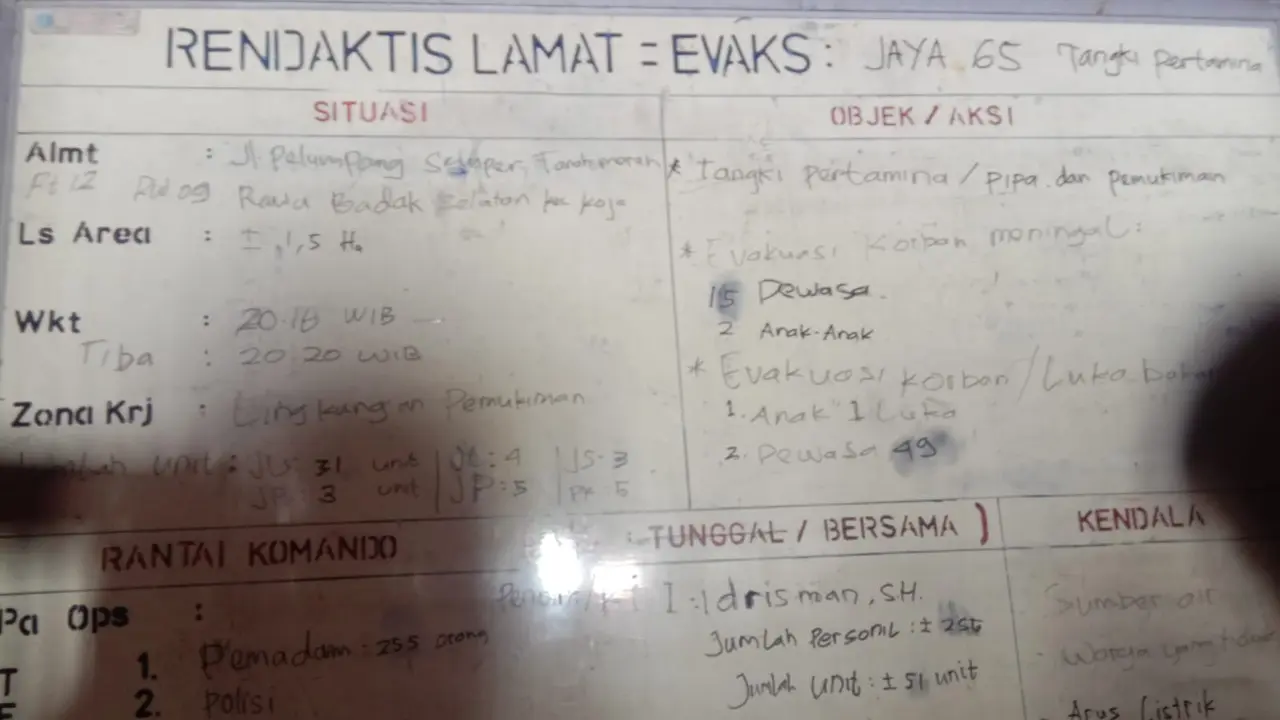 RENDAKTIS LAMAT = EVAKS : JAYA 65 Tangki Pertamina
SITUASI
Almt : Jl. Pelumpang Semper, Tanah merah
Rt 12 RW 09 Rawa Badak Selatan kec Koja
Ls Area : ± 1,5 Ha
Wkt : 20.18 WIB
Tiba : 20 20 WIB
Zona Krj : Lingkungan Pemukiman
unit : 31 unit | JL : 4 | JS - 3
JP 3 unit | JP : 5 | 5
OBJEK / AKSI
* Tangki Pertamina / pipa dan pemukiman
* Evakuasi Korban meningal :
15 Dewasa.
2 Anak-Anak
* Evakuasi korban / Luka bakar
1. Anak" 1 Luka
2. Dewasa 49
RANTAI KOMANDO
: TUNGGAL / BERSAMA )
KENDALA
Pa Ops :
1. Pemadam : 255 orang
2. Polisi
I : Idrisman, S.H.
Jumlah Personil : ± 255
Jumlah Unit : ± 51 unit
Sumber air
Warga yang
Arus Listrik